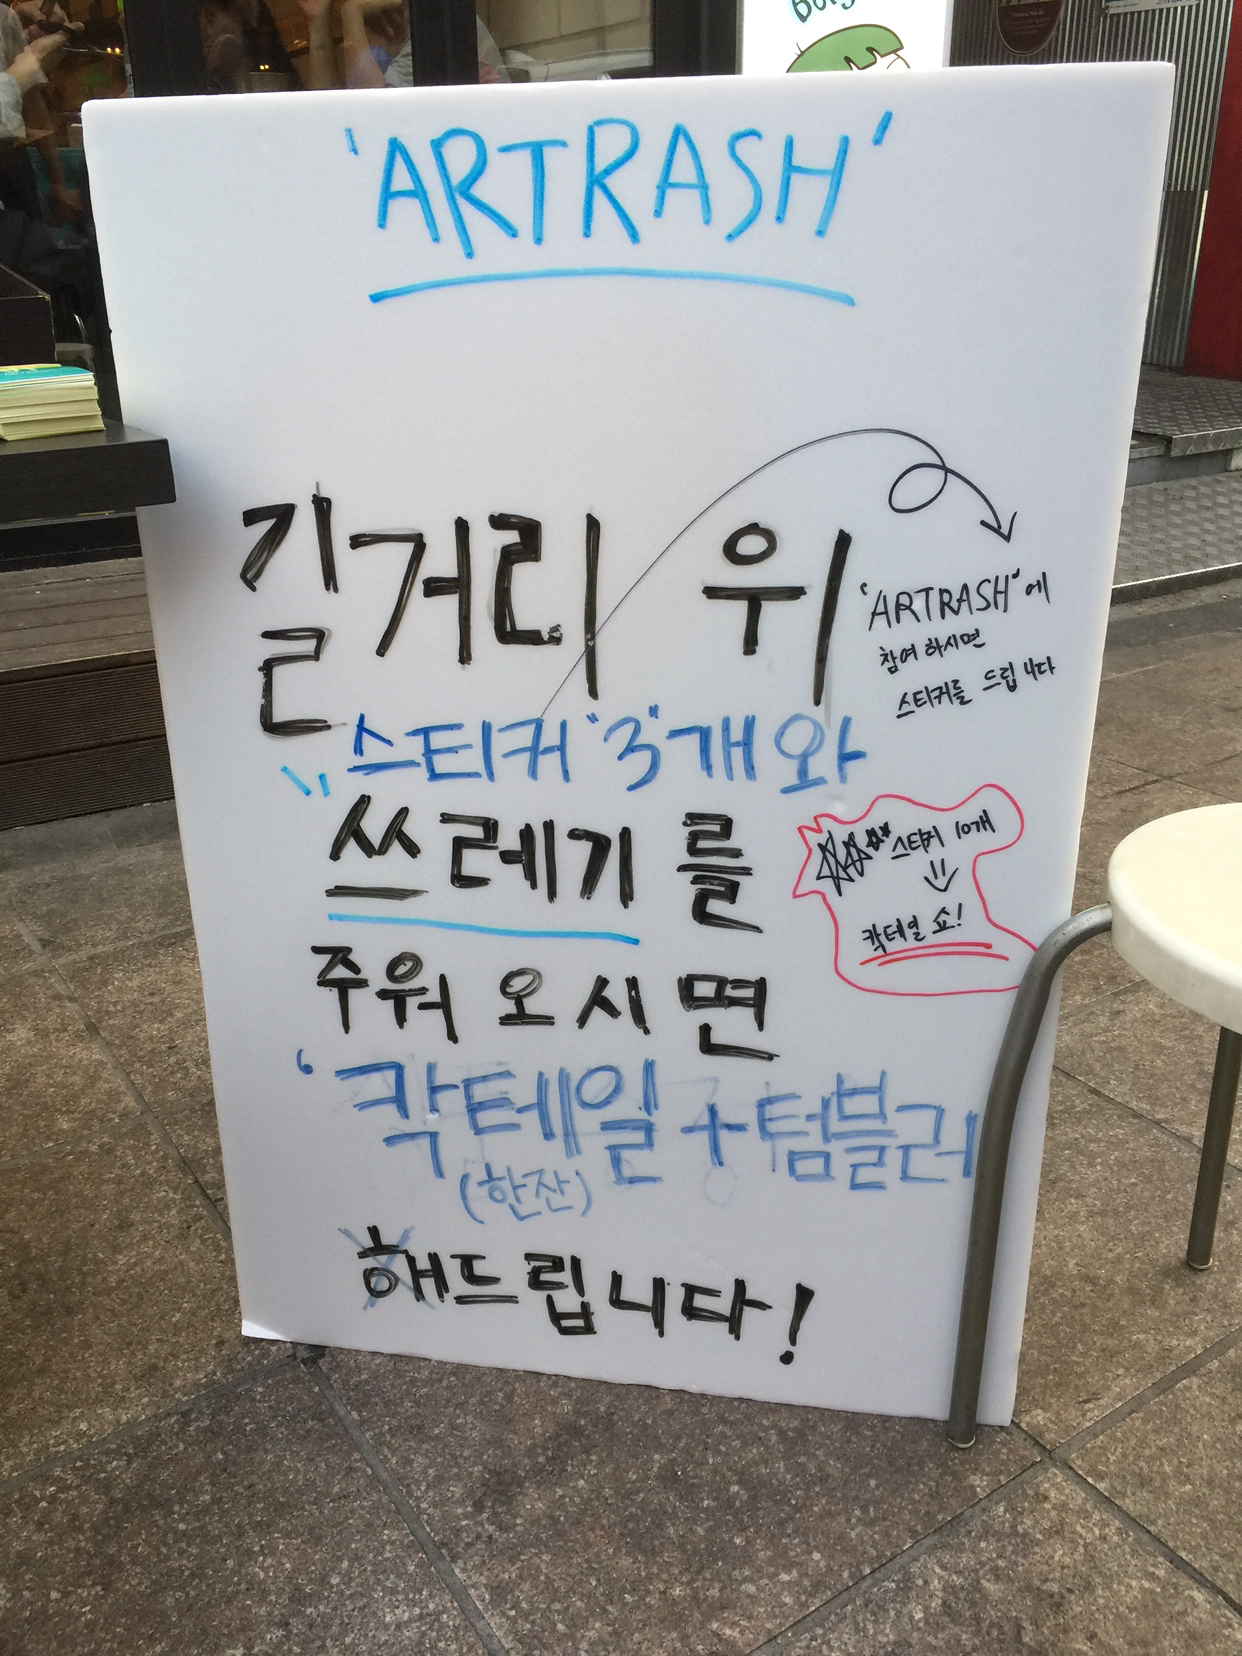 'ARTRASH'
길거리 위
'ARTRASH'에
참여 하시면
스티커를 드립니다
스티커 "3"개와
쓰레기를
스티커 10개
칵테일 쇼!
주워 오시면
'칵테일 + 텀블러
(한잔)
해드립니다!